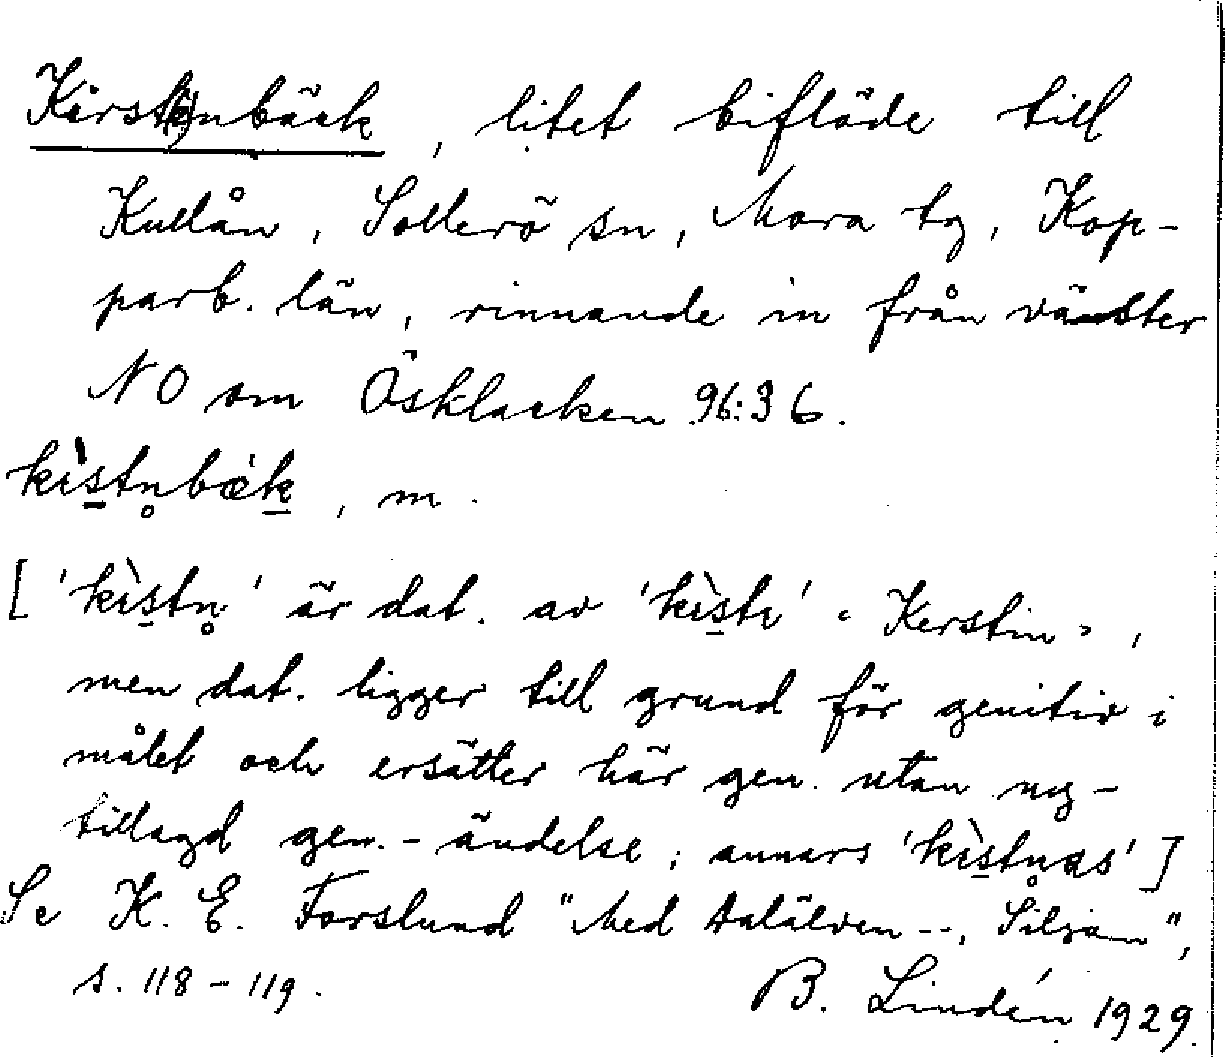 Kerst(i)nbäck, litet biflöde till
Kullån, Sollerö sn, Mora tg, Kop-
parb. län, rinnande in från vänster
NO om Ösklacken 96:36.
kìstn̥bǽk, m.
['kìstn̥' är dat. av 'kìsti' "Kerstin",
men dat. ligger till grund för genitiv i
målet och ersätter här gen. utan ny-
tillagd gen.-ändelse; annars 'kìstn̥as']
Se K. E. Forslund "Med Dalälven --, Siljan",
s. 118-119.
B. Lindén 1929.